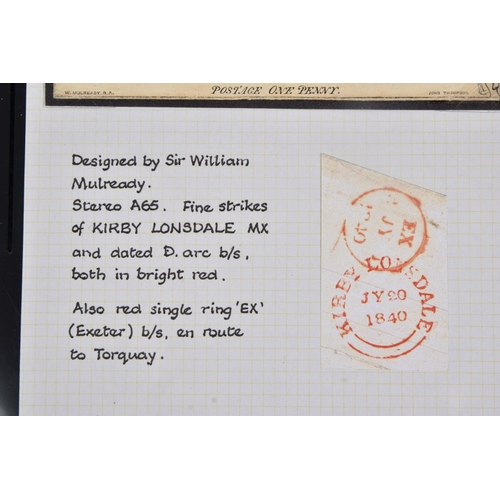 W. MULREADY, R.A.
POSTAGE ONE PENNY.
JOHN THOMPSON
Designed by Sir William
Mulready.
Stereo A65. Fine strikes
of KIRBY LONSDALE MX
and dated D. arc b/s,
both in bright red.
Also red single ring 'EX'
(Exeter) b/s, en route
to Torquay.
EX
JY
1840
KIRBY LONSDALE
JY 20
1840